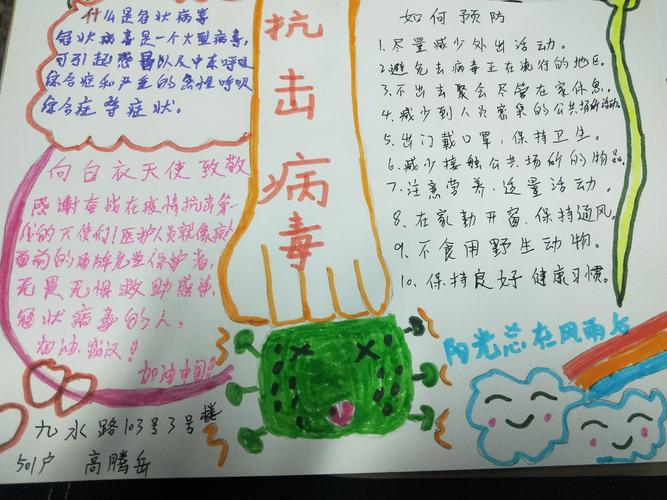 什么是冠状病毒
冠状病毒是一个大型病毒,
可引起感冒以及中东呼吸
综合症和严重的急性呼吸
综合症等症状。
抗击病毒
向白衣天使致敬
感谢奋战在疫情抗击第一
线的天使们!医护人员就像病人
面前的盾牌
无畏无惧救助感染
冠状病毒的人。
加油武汉!
加油中国!
如何预防
1.尽量减少外出活动。
2.避免去病毒正在流行的地区。
3.不出去聚会尽管在家休息.
4.减少到人员密集的公共场所活动.
5.出门戴口罩,保持卫生。
6.减少接触公共场所的物品
7.注意营养.适量活动.
8.在家勤开窗.保持通风.
9.不食用野生动物.
10.保持良好健康习惯.
阳光总在风雨后
九水路103号3号楼
501户 高腾岳